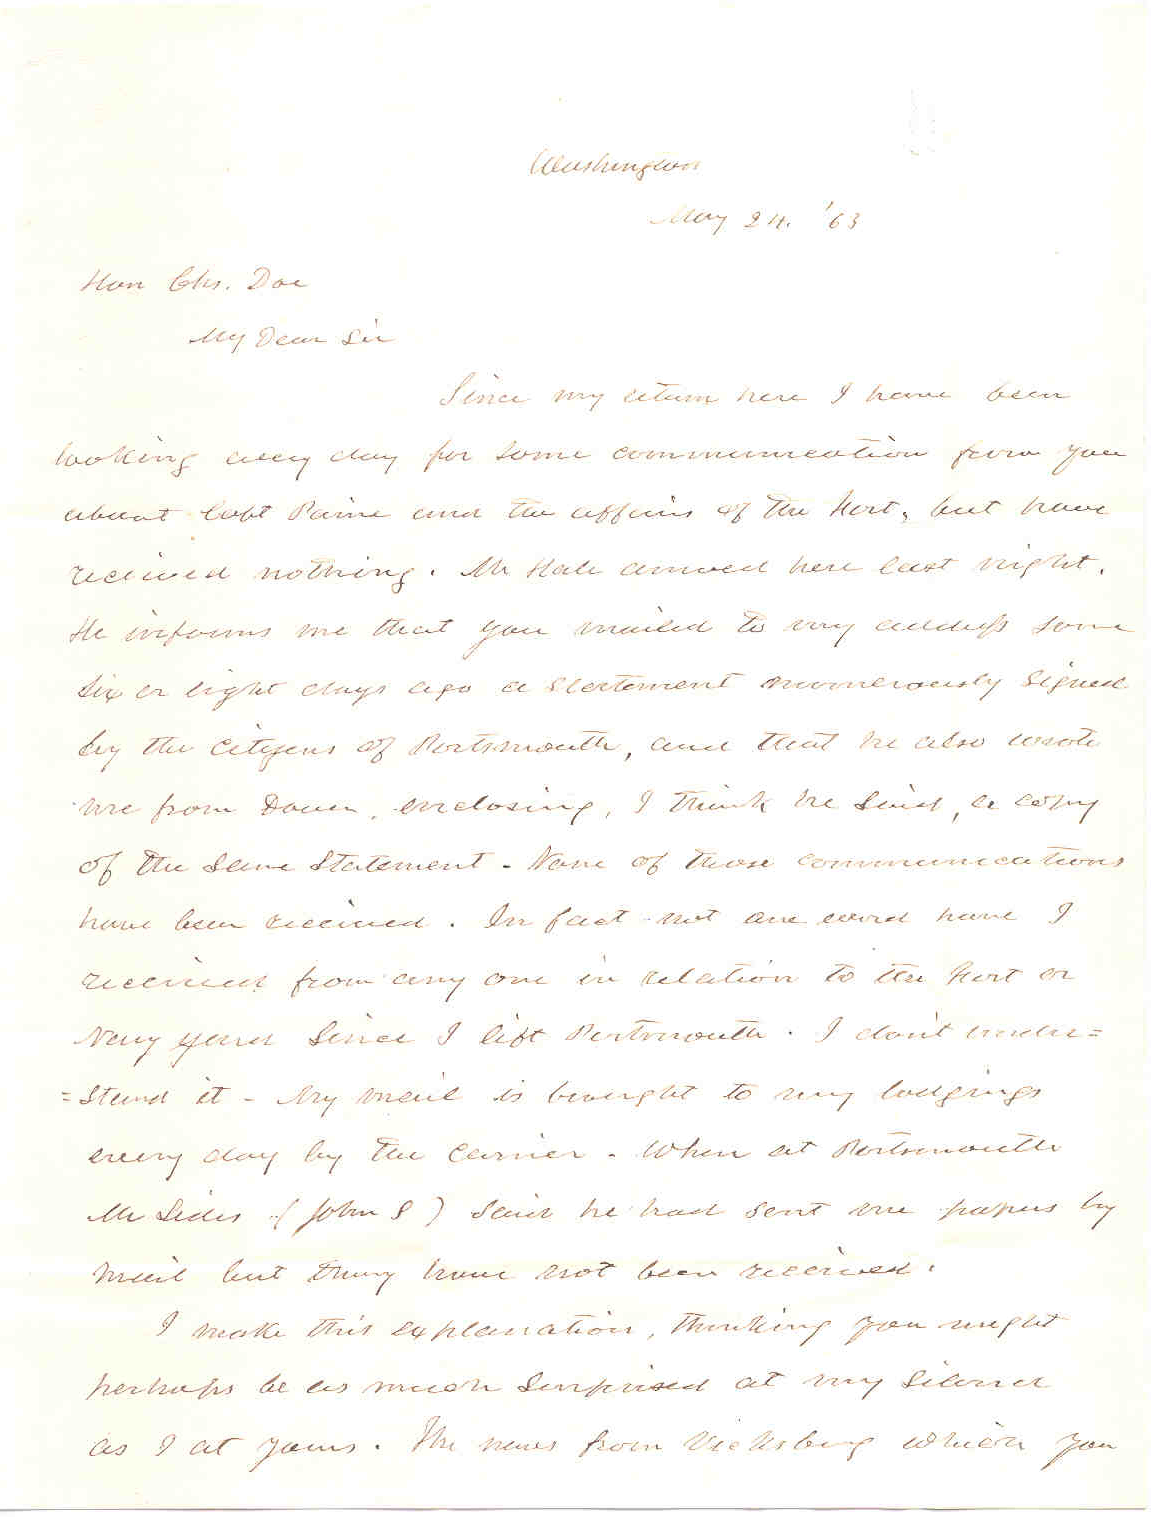 Washington
May 24. '63
Hon Chs. Doe
My Dear Sir
Since my return here I have been
looking every day for some communication from you
about Capt Paine and the affairs of the Port, but have
received nothing. Mr Hale arrived here last night.
He informs me that you mailed to my address some
six or eight days ago a statement numerously signed
by the citizens of Portsmouth, and that he also wrote
me from Dover, enclosing, I think he said, a copy
of the same statement - None of these communications
have been received. In fact not one word have I
received from any one in relation to the Port or
Navy Yard since I left Portsmouth. I don't under=
=stand it - My mail is brought to my lodgings
every day by the carrier - When at Portsmouth
Mr Sides (John S) said he had sent me papers by
mail but they have not been received.
I make this explanation, thinking you might
perhaps be as much surprised at my silence
as I at yours. The news from Vicksburg which you